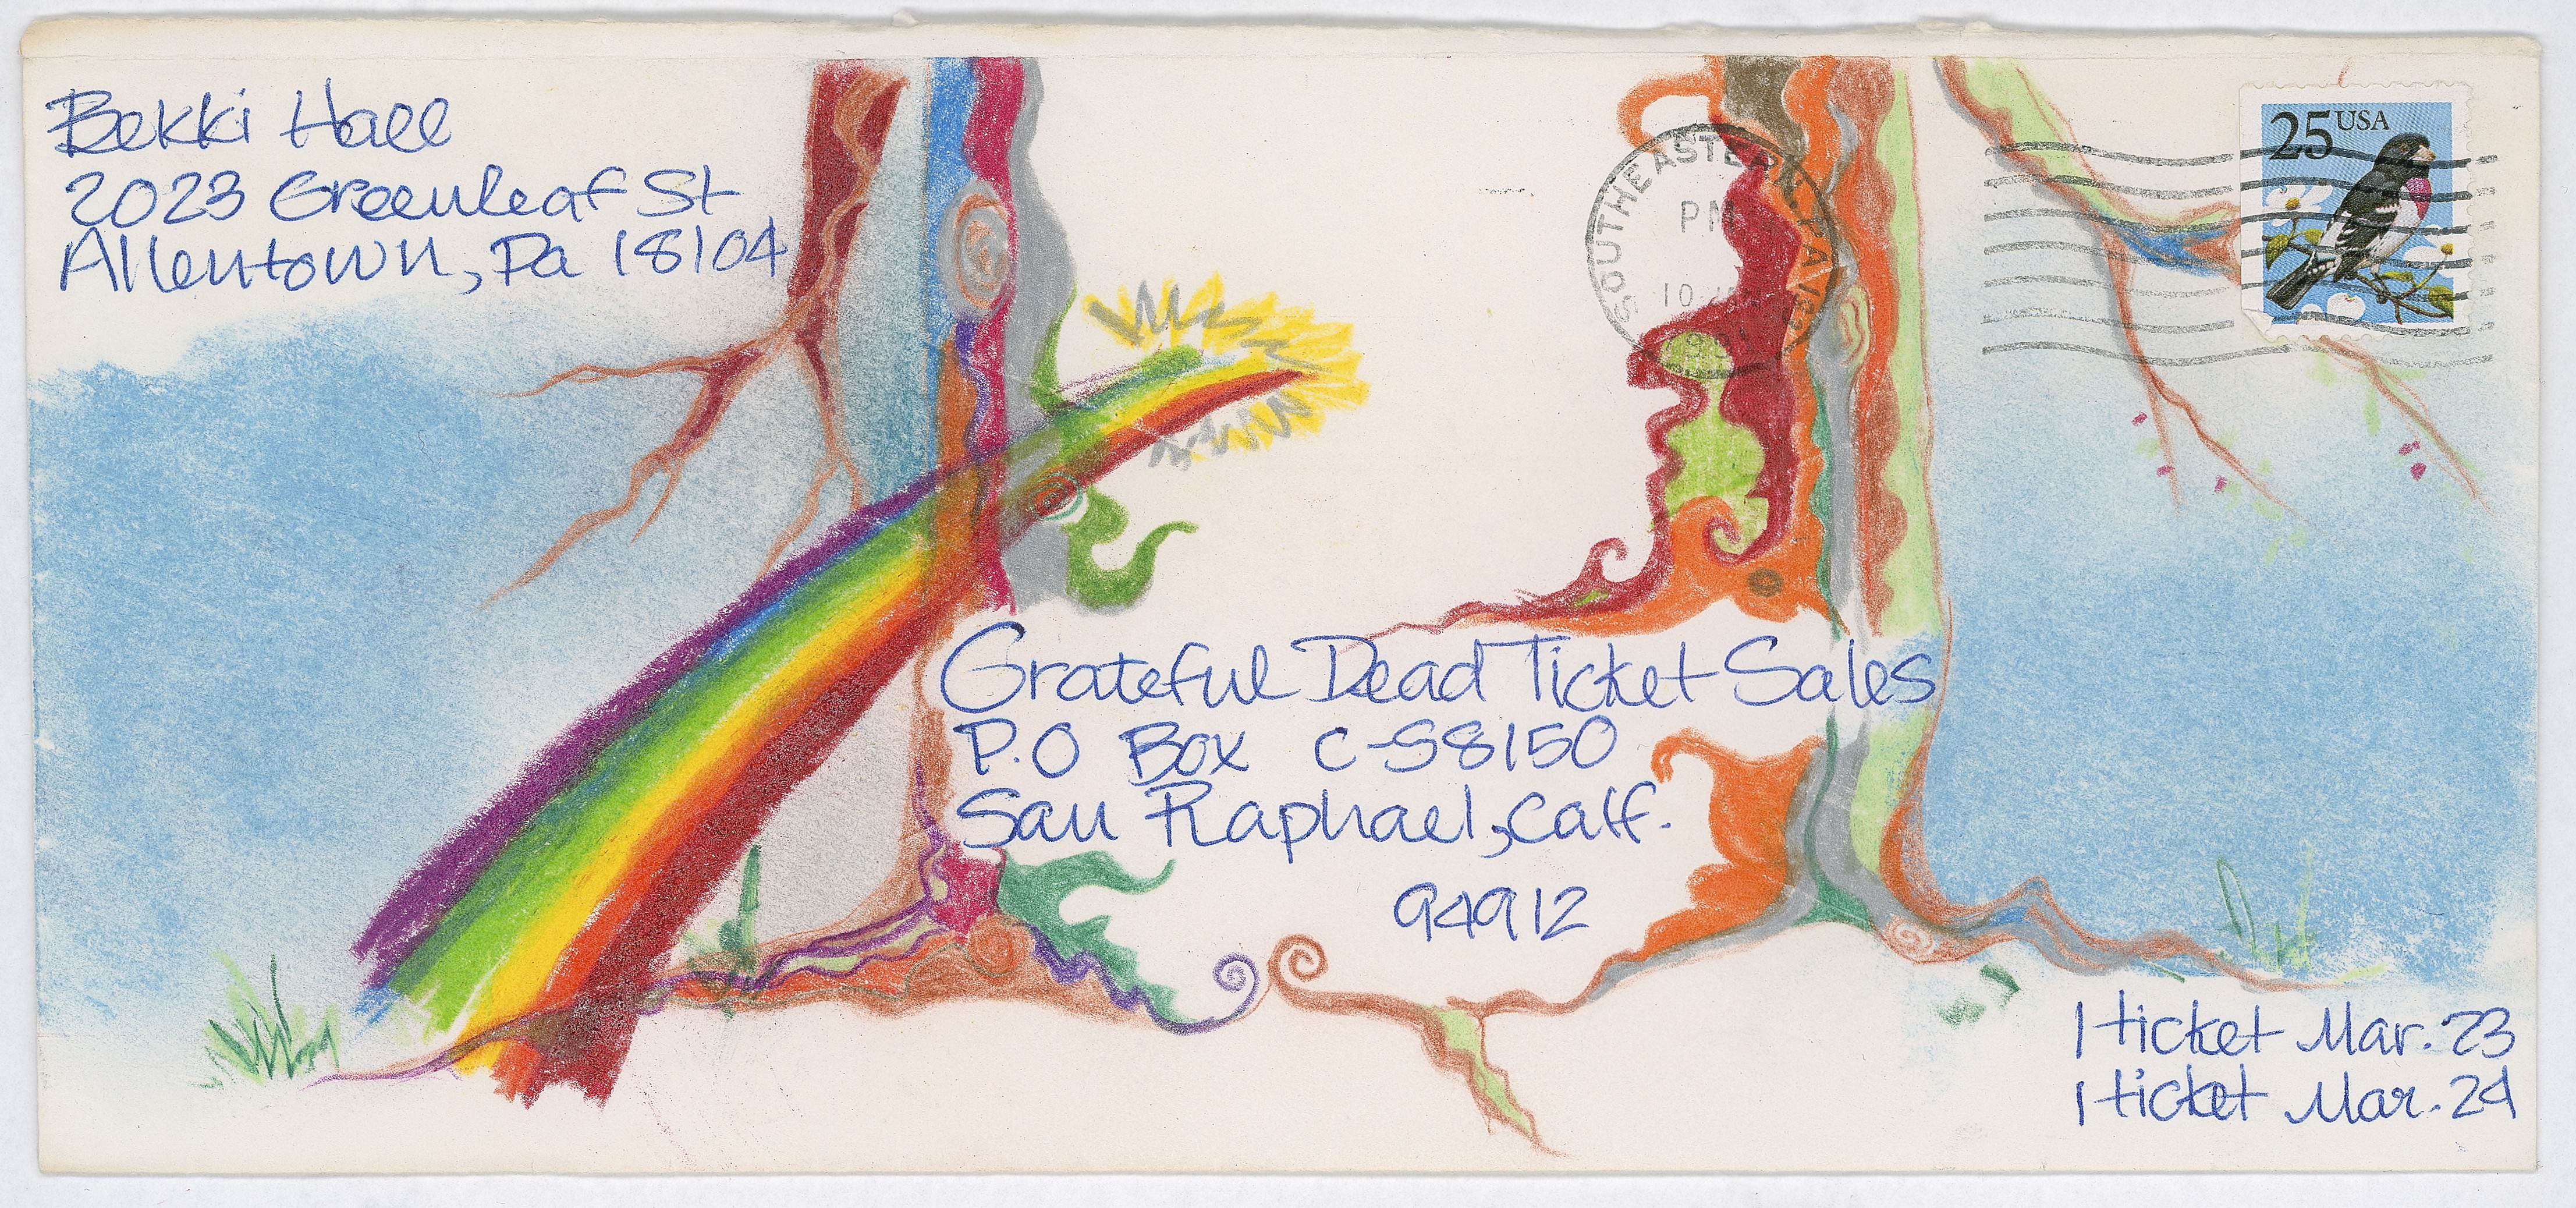 Bekki Hall
2023 Greenleaf St
Allentown, Pa 18104
25 USA
SOUTHEASTERN, PA
PM
10
Grateful Dead Ticket Sales
P.O Box C-S8150
San Raphael, Calf.
94912
1 ticket Mar. 23
1 ticket Mar. 24